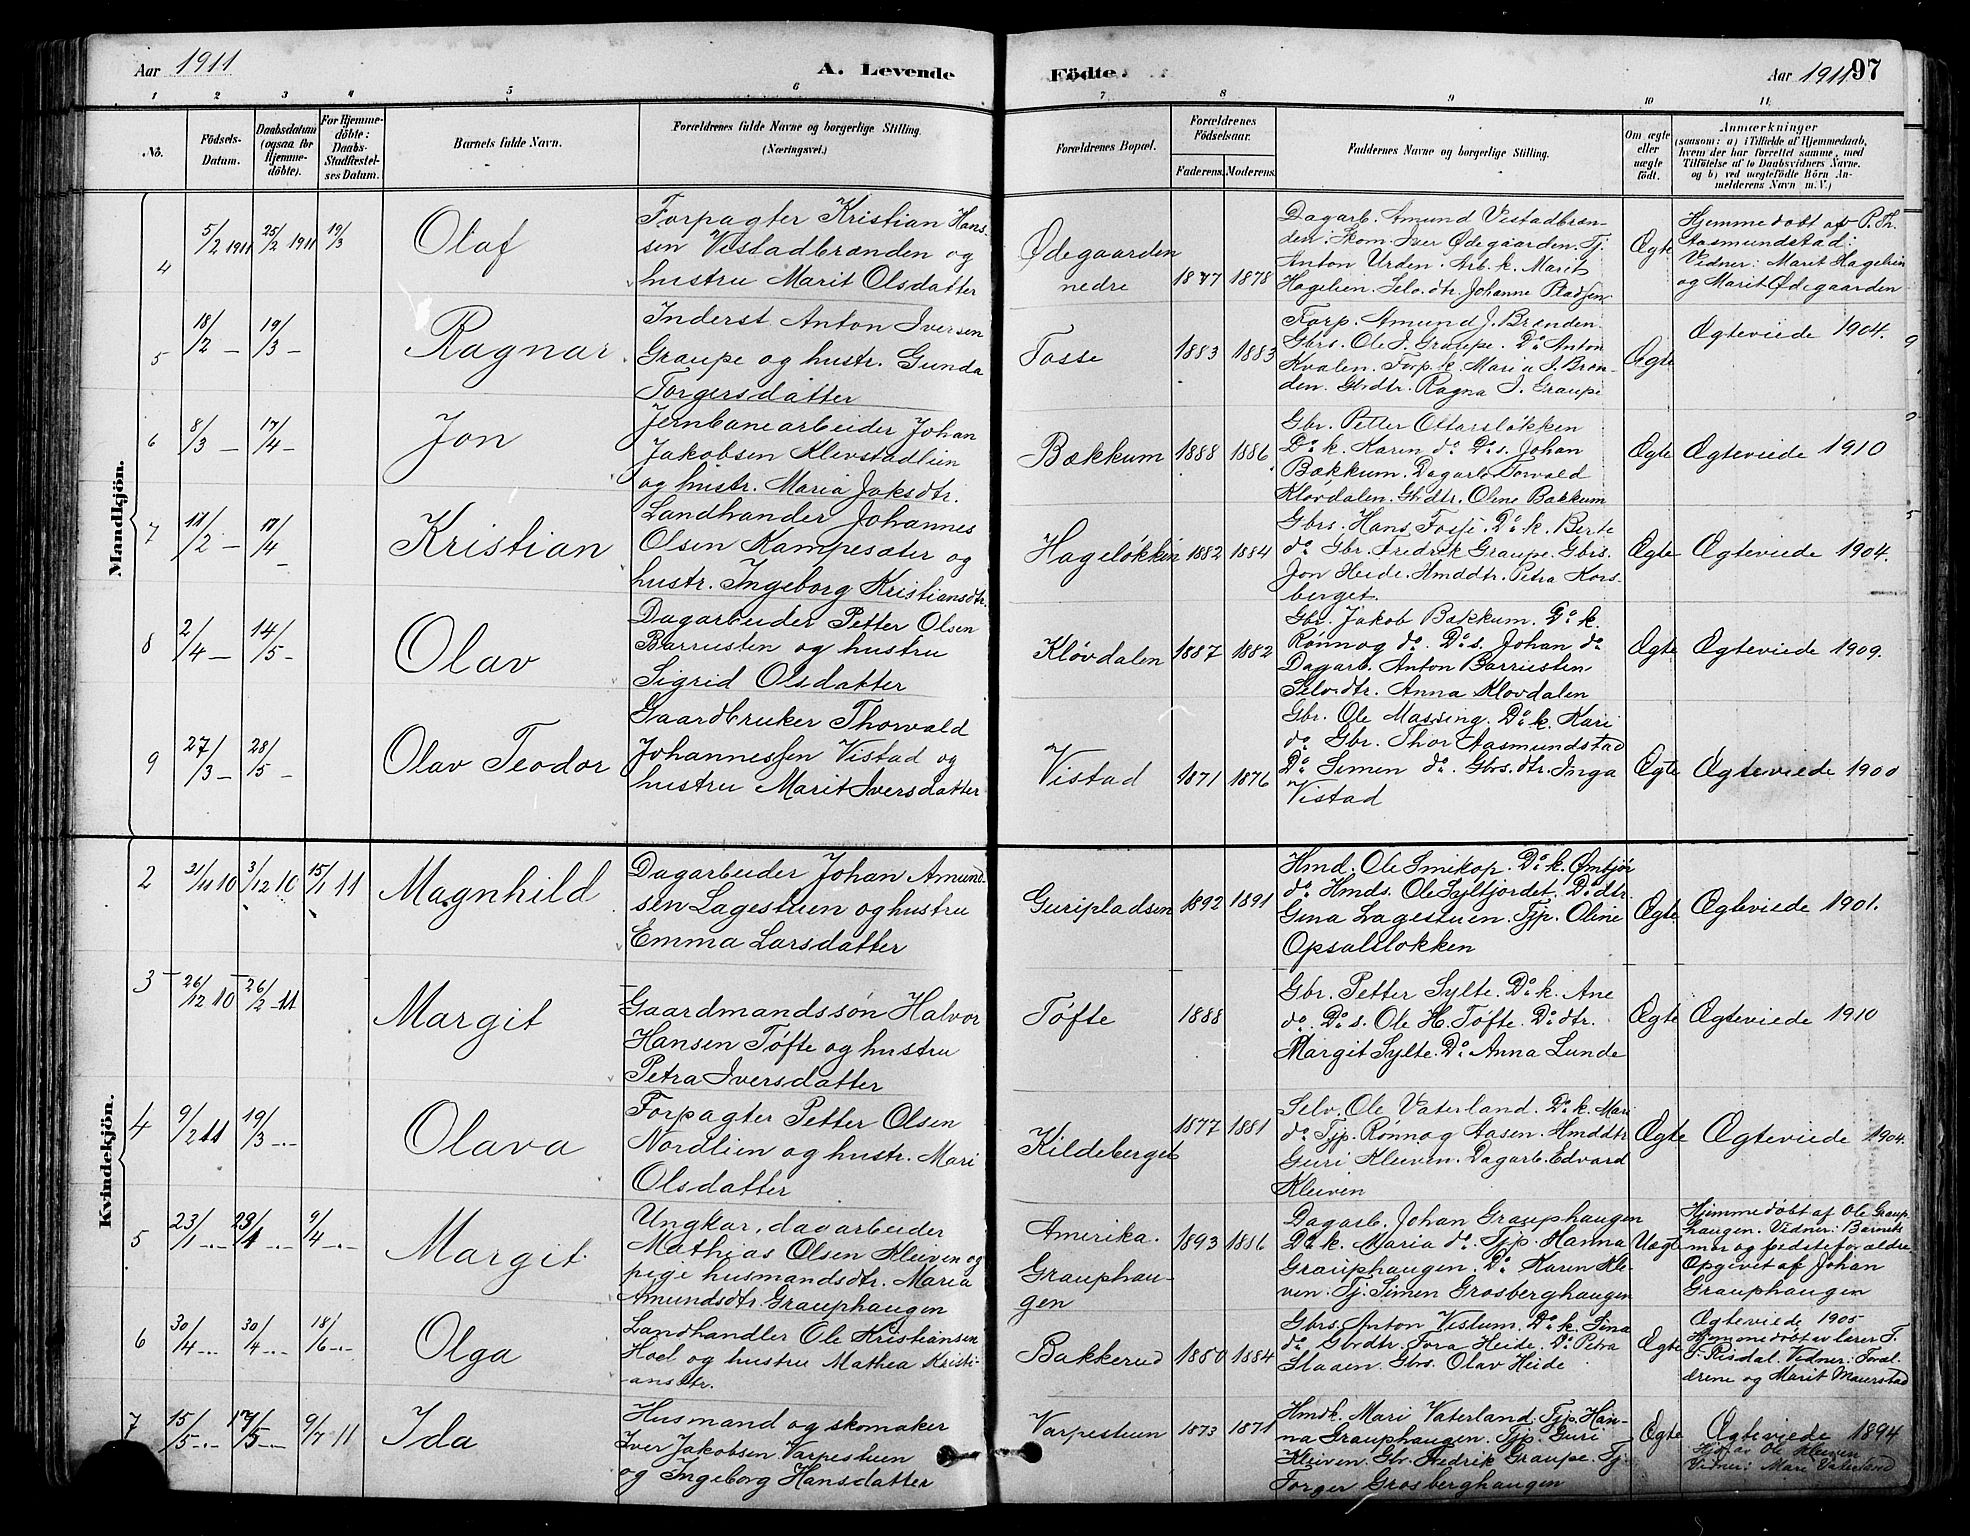 Aar 1911
A. Levende
Födte.
Aar 1911
97
1 2 3 4 5 6 7 8 9 10 11
No.
Födsels-
Datum.
Daabsdatum
(ogsaa for
Hjemme-
döbte).
For Hjemme-
döbte:
Daabs-
Stadfæstel-
ses Datum.
Barnets fulde Navn.
Forældrenes fulde Navne og borgerlige Stilling.
(Næringsvei.)
Forældrenes Bopæl.
Forældrenes
Födselsaar.
Faderens. Moderens.
Faddernes Navne og borgerlige Stilling.
Om ægte
eller
uægte
födt.
Anmærkninger
(saasom: a) i Tilfælde af Hjemmedaab,
hvem der har forrettet samme, med
Tilföielse af to Daabsvidners Navne.
og b) ved uægtefödte Börn An-
melderens Navn m.V.)
Mandkjön.
4
5/2 1911
25/2 1911
19/3
Olaf
Forpagter Kristian Hans-
sen Vistadbrænden og
hustru Marit Olsdatter
Ødegaarden
nedre
1877 1878
Dagarb. Amund Vistadbræn-
den. Skom. Iver Ødegaarden. Tj.
Anton Urden. Arb. k. Marit
Hagelien. Selv. dtr. Johanne Pladsen
Ægte
Hjemmedøbt af P. Th.
Aasmundstad:
Vidner: Marit Hagelien
og Marit Ødegaarden
5
18/2 –
19/3 –
Ragnar
Inderst Anton Iversen
Graupe og hustr. Gunda
Torgersdatter
Fosse
1883 1883
Forp. Amund J. Brænden.
Gbrs. Ole I. Graupe. Do Anton
Kvalen. Forp. k. Maria J. Bræn-
den. Gbdtr. Ragna I. Graupe
Ægte
Ægteviede 1904.
6
8/3 –
17/4 –
Jon
Jernbanearbeider Johan
Jakobsen Klevstadlien
og hustr. Maria Jaksdtr.
Bækkum
1888 1886
Gbr. Petter Ottarsløkken
Do k. Karen do. Do s. Johan
Bækkum. Dagarb. Torvald
Kløvdalen. Gbdtr. Oline Bakkum
Ægte
Ægteviede 1910
7
11/2 –
17/4 –
Kristian
Landhander Johannes
Olsen Kampesæter og
hustr. Ingeborg Kristiansdtr.
Hageløkken
1882 1884
Gbrs. Hans Fosse. Do k. Berte
do Gbr. Fredrik Graupe. Gbrs.
Jon Heide. Hmddtr. Petra Kors-
berget.
Ægte
Ægteviede 1904.
8
2/4 –
14/5 –
Olav
Dagarbeider Petter Olsen
Barrusten og hustru
Sigrid Olsdatter
Kløvdalen
1887 1882
Gbr. Jakob Bækkum. Do k.
Rønnog do. Do s. Johan do
Dagarb. Anton Barrusten
Selv. dtr. Anna Kløvdalen
Ægte
Ægteviede 1909.
9
27/3 –
28/5 –
Olav Teodor
Gaardbruker Thorvald
Johannessen Vistad og
hustru Marit Iversdatter
Vistad
1871 1876
Gbr. Ole Massing. Do k. Kari
do. Gbr. Thor Aasmundstad
Do Simen do. Gbrs. dtr. Inga
Vistad
Ægte
Ægteviede 1900
Kvindekjön.
2
21/11 10
3/12 10
15/1 11
Magnhild
Dagarbeider Johan Amund-
sen Lagestuen og hustru
Emma Larsdatter
Guripladsen
1892 1891
Hmd. Ole Smikop. Do k. Ømbjør
do. Hmds. Ole Syltfjordet. Do dtr.
Gina Lagestuen. Tjp. Oline
Opsalsløkken
Ægte
Ægteviede 1901.
3
26/12 10
26/2 11
Margit
Gaardmandssøn Halvor
Hansen Tøfte og hustru
Petra Iversdatter
Tøfte
1888
Gbr. Petter Sylte. Do k. Ane
do. Do s. Ole H. Tøfte. Do dtr.
Margit Sylte. Do Anna Lunde
Ægte
Ægteviede 1910
4
9/2 11
19/3 „
Olava
Forpagter Petter Olsen
Nordlien og hustr. Mari
Olsdatter
Kildeberget
1877 1881
Selv. Ole Vaterland. Do k. Mari
do Tjp. Rønnog Aasen. Hmddtr
Guri Kleiven. Dagarb. Edvard
Kleiven
Ægte
Ægteviede 1904.
5
23/1 „
29/1 „
9/4 „
Margit
Ungkar, dagarbeider
Mathias Olsen Kleiven og
pige husmandsdtr. Maria
Amundsdtr. Grauphaugen
Amerika.
Grauphau-
gen
1893 1886
Dagarb. Johan Grauphaugen
Do k. Maria do. Tjp. Hanna
Grauphaugen. Do Karen Klei-
ven. Tj. Simen Grosberghaugen
Uægte
Hjemmedøbt af Ole Graup-
haugen. Vidner: Barnets
mor og fødsteforældre
Opgivet af Johan
Grauphaugen
6
30/4 „
30/4 „
18/6 „
Olga
Landhandler Ole Kristiansen
Hoel og hustru Mathea Kristi-
ansdtr.
Bakkerud
1880 1884
Gbrs. Anton Vistum. Do k. Sina
do. Gbrdtr. Tora Heide. Do Petra
Slaaen. Gbrs. Olav Heide
Ægte
Ægteviede 1905
Hjemmedøbt av lærer T.
Risdal. Vidner: Foræl-
drene og Marit Maurstad
7
15/5 „
17/5 „
9/7 11
Ida
Husmand og skomaker
Iver Jakobsen Varpestuen
og Ingeborg Hansdatter
Varpestuen
1873 1871
Hmdk. Mari Vaterland. Tjp. Han-
na Grauphaugen. Tjp. Guri
Kleiven. Gbr. Fredrik Graupe. Tj.
Torger Grosberghaugen
Ægte
Ægteviede 1894
Hjd. av Ole Kleiven
Vidner: Mari Vaterland